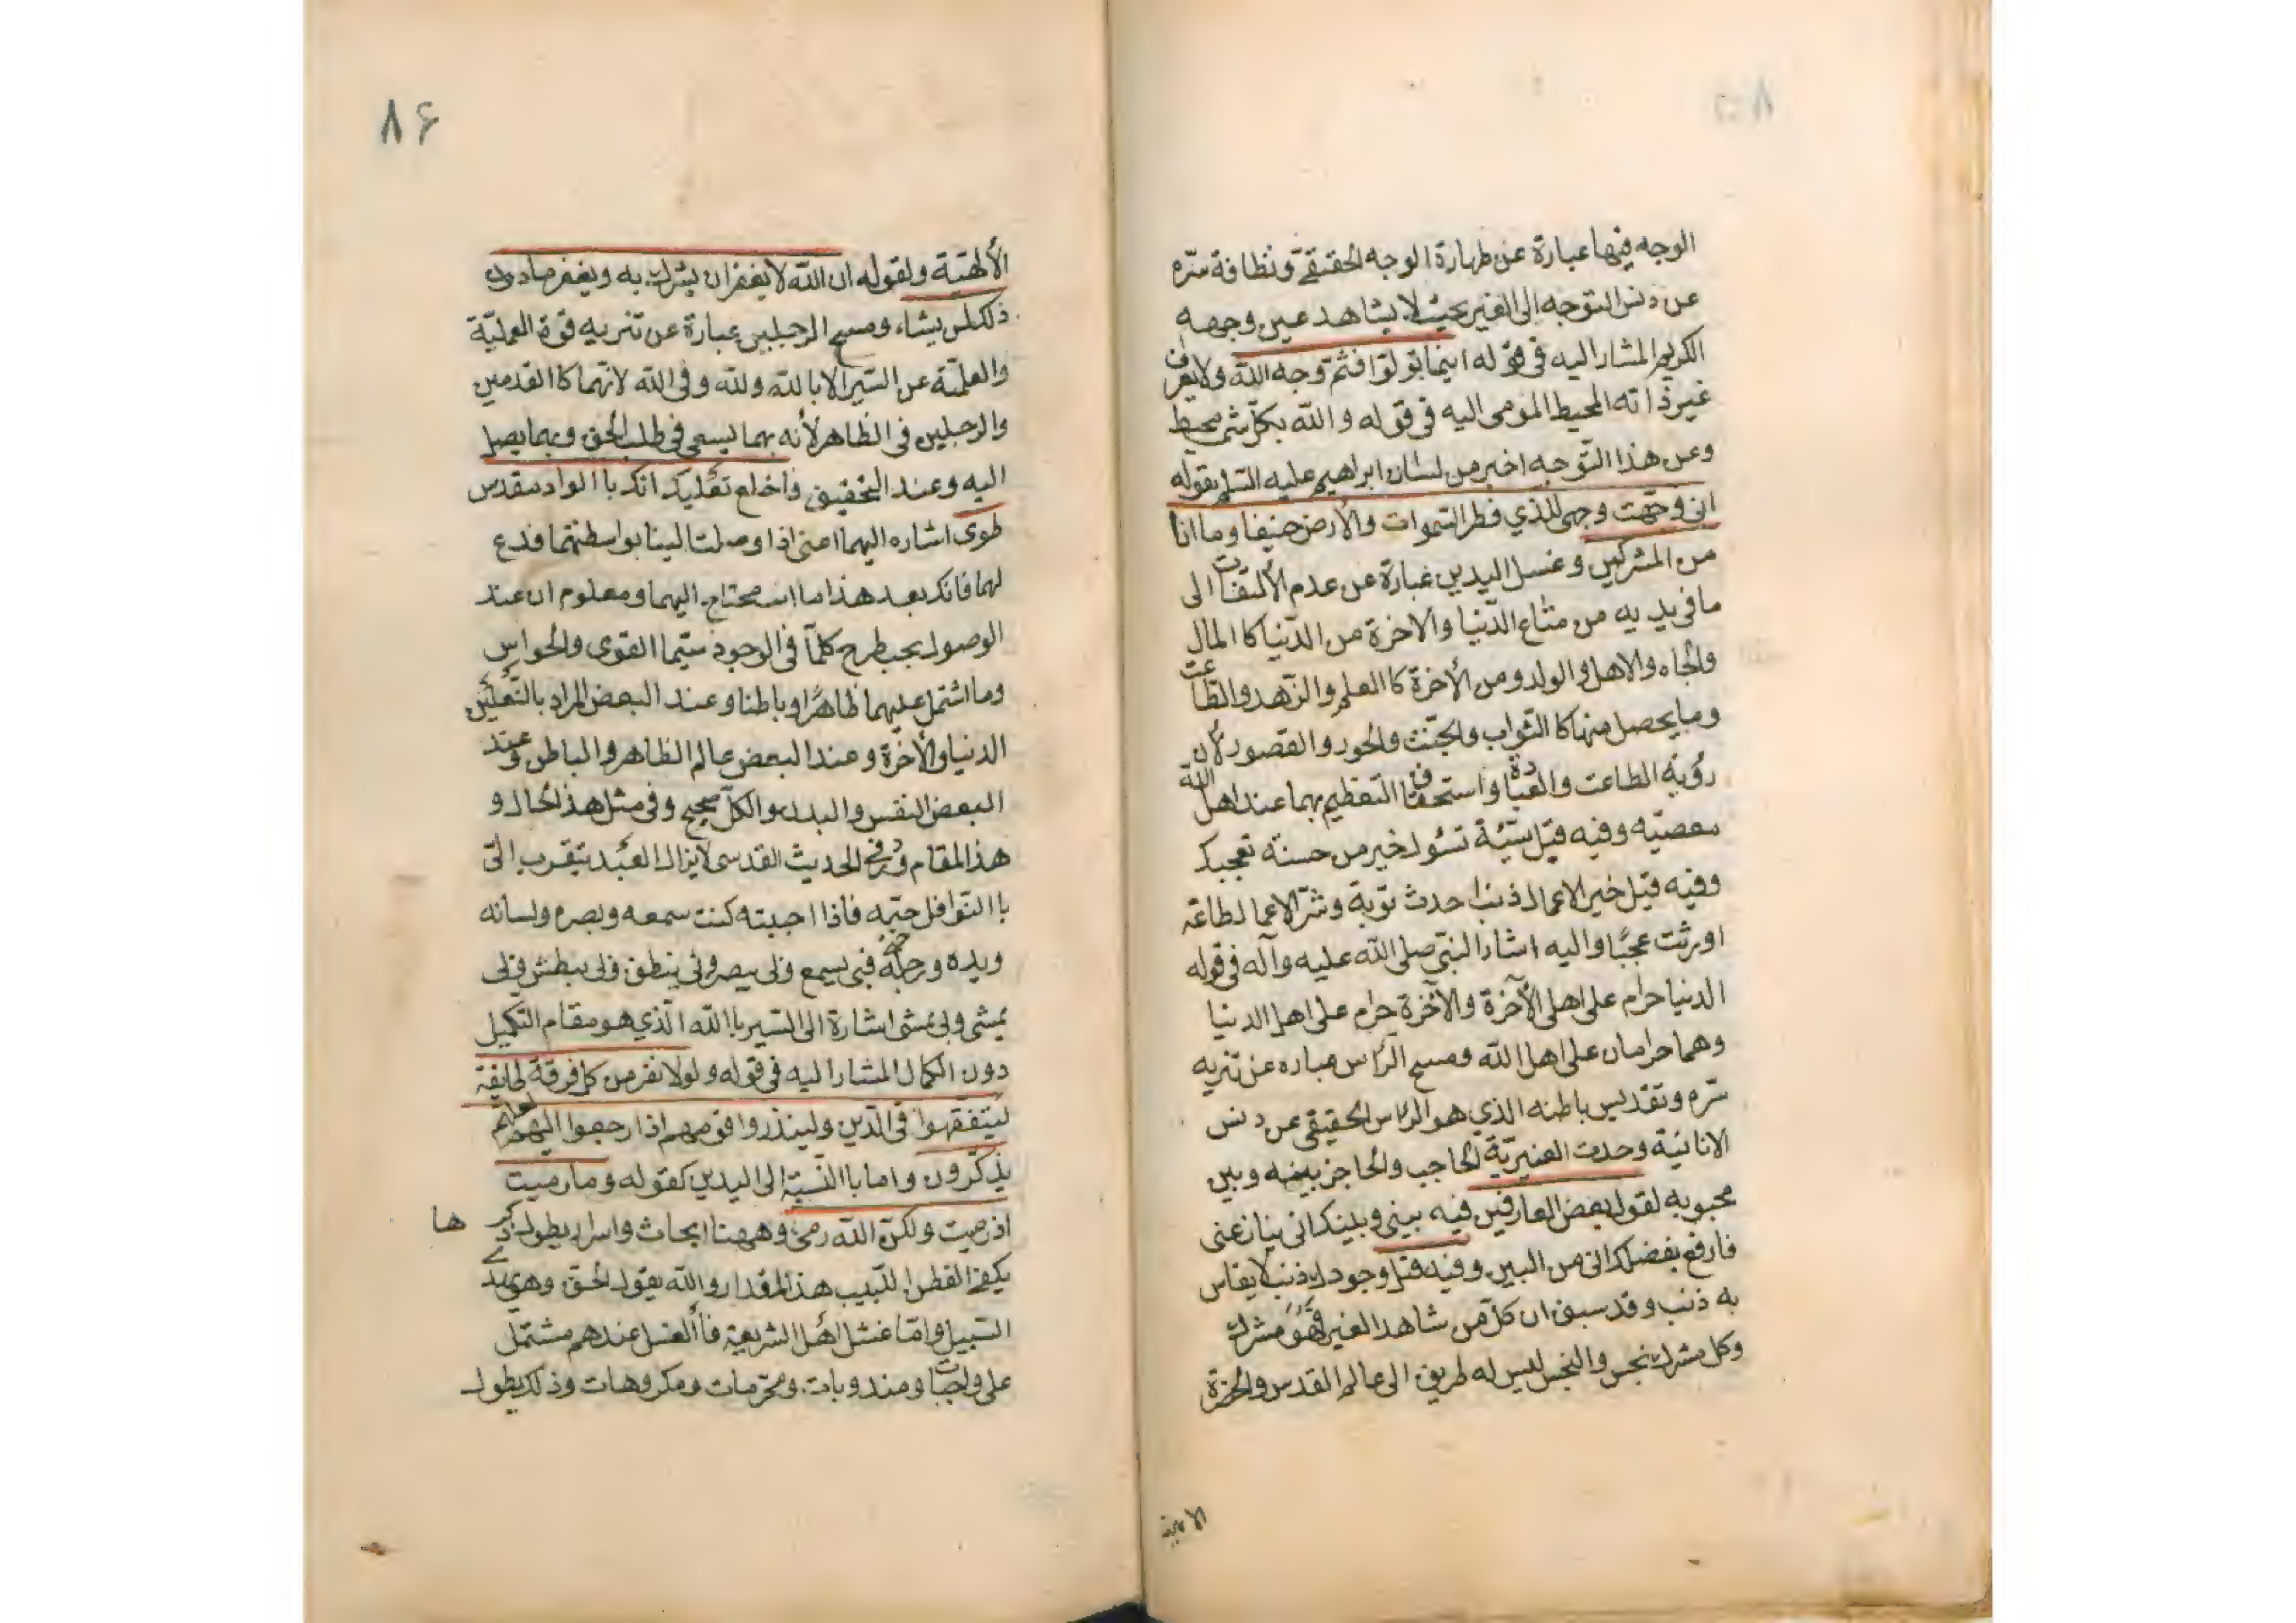 الوجه فيها عبارة عن طهارة الوجه الحقيقة ونظافة سرّه
عن دنس التوجه الى الغير بحيث لا يشاهد عين وجهه
الكريم المشار اليه فى قوله اينما تولوّا فثم وجه الله ولا يعرف
غير ذاته المحيط المومى اليه فى قوله والله بكل شئ محيط
وعن هذا التوجه اخبر من لسان ابراهيم عليه السلم بقوله
انى وجّهت وجهى للذي فطر السموات والأرض حنيفا وما انا
من المشركين وغسل اليدين عبارة عن عدم الألتفات الى
ما فى يديه من متاع الدّنيا والاخرة من الدّنيا كا المال
والجاه والاهل والولد ومن الأخرة كا العلم والزهد والطاعت
وما يحصل منها كا الثواب والجنّت والحور والقصور لأن
رؤية الطاعت والعبادة واستحقاق التعظيم بهما عند اهل الله
معصيّه وفيه قيل سيّئة تسؤك خير من حسنة تعجبك
وفيه قيل خير الاعمال ذنبا احدث توبة وشرّ الاعمال طاعة
اورثت عجبًا واليه اشار النبيّ صلى الله عليه وآله فى قوله
الدنيا حرام على اهل الآخرة والآخرة حرام على اهل الدنيا
وهما حرامان على اهل الله ومسح الرّاس عباره عن تنزيه
سّره وتقديس باطنه الذي هو الرّاس الحقيقى عن دنس
الانانيّة وحدت الغيريّة الحاجب والحاجز بينه وبين
محبوبه لقول بعض العارفين فيه بينى وبينك انى ينازعنى
فارفع بفضلك انى من البين وفيه قيل وجودك ذنب لا يقاس
به ذنب وقد سبق ان كل من شاهد الغير فهو مشرك
وكل مشرك نجس والنجس ليس له طريق الى عالم القدس والحضرة
الالهية
۸۶
الألهيّة ولقوله ان الله لا يغفر ان يشرك به ويغفر ما دون
ذلك لمن يشاء ومسح الرجلين عبارة عن تنزيه قوة العمليّة
والعلميّة عن السّير الا با لله ولله وفى الله لانّهما كا القدمين
والرجلين فى الظاهر لأنه بهما يسعى فى طلب الحق وبهما يصل
اليه وعند التحقيق فاخلع نعليك انك با الواد مقدس
طوى اشاره اليهما اعنى اذا وصلت الينا بواسطتهما فدع
لهما فانك بعد هذا ما انت محتاج اليهما ومعلوم ان عند
الوصول يجب طرح كلما فى الوجود سيّما القوى والحواس
وما اشتمل عليهما ظاهرًا وباطنا وعند البعض المراد بالنّعلين
الدنيا والأخرة وعند البعض عالم الظاهر والباطن وعند
البعض النفس والبدن والكلّ صحيح وفى مثل هذ الحال و
هذ المقام ورد فى الحديث القدسى لا يزال العبد يتقرب الىّ
با النّوافل حبّه فاذا احببته كنت سمعه وبصره ولسانه
ويده ورجله فبى يسمع وبى يبصر وبى ينطق وبى يبطش وبى
يمشى وبى يمشى اشارة الى السّير با الله الّذي هو مقام التكميل
دون الكمال المشار اليه فى قوله ولولا نفر من كل فرقة طائفة
ليتفقهوا فى الدّين ولينذروا قومهم اذا رجعوا اليهم لعلهم
يذكّرون واما با النّسبة الى اليدين كقوله وما رميت
اذ رميت ولكنّ الله رمى وههنا ابحاث واسرار يطول ذكر ها
يكفى الفطن اللّبيب هذ المقدار والله يقول الحق وهو يهدي
السّبيل وامّا غسل اهل الشريعة فأ الغسل عندهم مشتمل
على واجبات ومندوبات ومحرّمات ومكروهات وذلك يطول